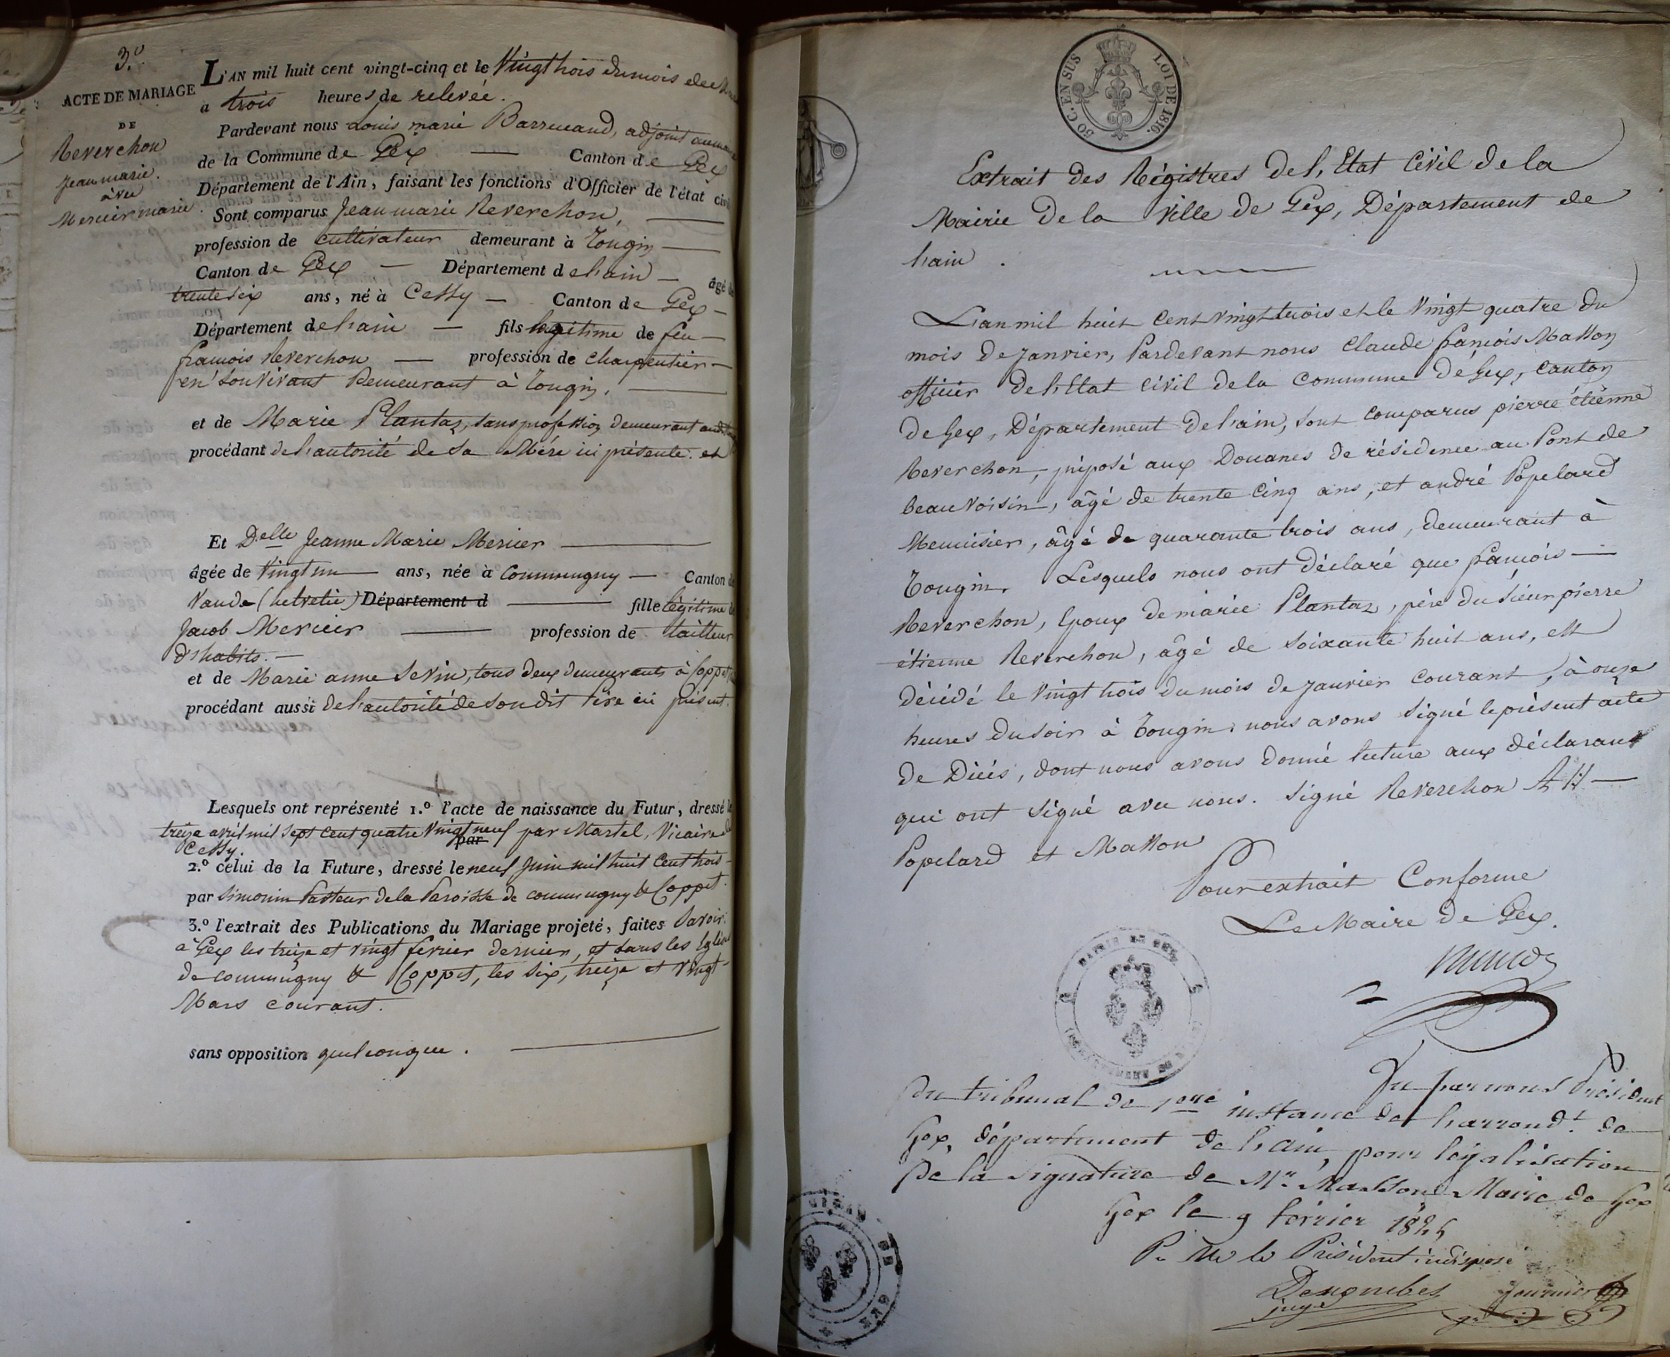 3.º
ACTE DE MARIAGE
DE
Reverchon
Jean marie.
avec
Mercier marie
L'AN mil huit cent vingt-cinq et le Vingt trois du mois de
a trois heures de relevée.
Pardevant nous Louis marie Barrucand, adjoint au
de la Commune de Gex — Canton de Gex
Département de l'Ain, faisant les fonctions d'Officier de l'état civil
Sont comparus Jean marie Reverchon, —
profession de cultivateur demeurant à Tougin —
Canton de Gex — Département de l'ain — âgé de
trente six ans, né à Cessy — Canton de Gex —
Département de l'ain — fils légitime de feu —
françois Reverchon — profession de charpentier —
en son vivant demeurant à Tougin, —
et de Marie Plantaz, sans profession demeurant
procédant de l'autorité de sa Mére ici présente. et
Et Delle Jeanne Marie Mercier —
âgée de Vingt un — ans, née à Commugny — Canton de
Vaude (helvetie) Département d — fille légitime de
Jacob Mercier — profession de tailleur
d'habits. —
et de Marie anne Sevin, tous deux demeurants à Coppet,
procédant aussi de l'autorité de son dit Père ici présent.
Lesquels ont représenté 1.º l'acte de naissance du Futur, dressé le
treize avril mil sept cent quatre vingt neuf par Martel, Vicaire de
Cessy. par
2.º celui de la Future, dressé le neuf Juin mil huit Cent trois —
par Simonin Pasteur de la Paroisse de commugny & Coppet.
3.º l'extrait des Publications du Mariage projeté, faites Savoir:
à Gex les treize et vingt février dernier, et dans les Eglises
de commugny & Coppet, les six, treize et Vingt
Mars courant.
sans opposition quelconque. —
50 C. EN SUS LOI DE 1816.
Extrait des Régistres de l'Etat Civil de la
Mairie de la Ville de Gex, Département de
l'ain.
L'an mil huit Cent Vingt trois et le Vingt quatre du
mois de Janvier, Pardevant nous Claude françois Masson
officier de l'Etat Civil de la Commune de Gex, Canton
de Gex, Département de l'ain, sont comparus pierre étienne
Reverchon, préposé aux Douanes de résidence au Pont de
beauvoisin, âgé de trente cinq ans, et andré Popelard
Menuisier, âgé de quarante trois ans, demeurant à
Tougin. Lesquels nous ont déclaré que françois —
Reverchon, Epoux de marie Plantaz, père du Sieur pierre
étienne Reverchon, âgé de soixante huit ans, est
décédé le vingt trois du mois de Janvier courant, à onze
heures du soir à Tougin, nous avons Signé le présent acte
de Décés, dont nous avons donné lecture aux déclarant
qui ont signé avec nous. Signé Reverchon A H —
Popelard et Masson
Pour extrait Conforme
Le Maire de Gex.
Du tribunal de 1ere instance de l'arrondt. de
Vu par nous Président
Gex, département de l'ain, pour légalisation
De la signature de Mr. Masson Maire de Gex
Gex le 9 février 1825
P. Mr le Président indisposé
Desgombes
juge